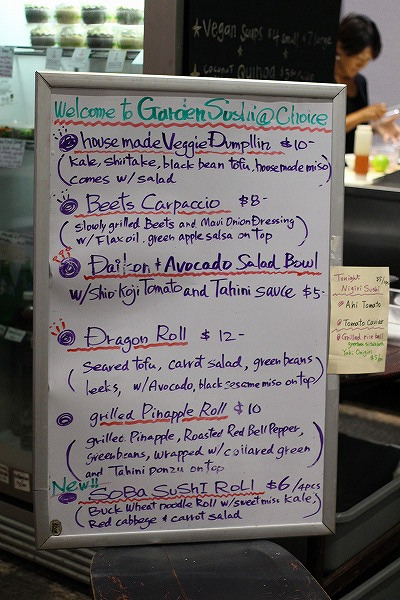 ★ Vegan Soups $4 small $7 large
★ Coconut Quinoa
Welcome to Garden Sushi @ Choice
house made Veggie Dumpllin $10-
(kale, shiitake, black bean tofu, house made miso)
comes w/ salad
Beets Carpaccio $8-
(slowly grilled Beets and Maui Onion Dressing)
w/ Flax oil. green apple salsa on top
Daikon & Avocado Salad Bowl
w/ Shio-Koji Tomato and Tahini sauce $5-
Dragon Roll $12-
(Seared tofu, carrot salad, green beans
leeks, w/ Avocado, black sesame miso on top)
grilled Pinapple Roll $10
(grilled Pinapple, Roasted Red Bell Pepper,
green beans, wrapped w/ collared green
and Tahini Ponzu on top)
New!!
SoBa SuSHI RoLL $6/4pcs
(Buck Wheat noodle Roll w/ sweet miso Kale)
Red cabbage & carrot salad
Tonight
Nigiri Sushi
Ahi Tomato
Tomato Caviar
Grilled rice ball
Yaki Onigiri